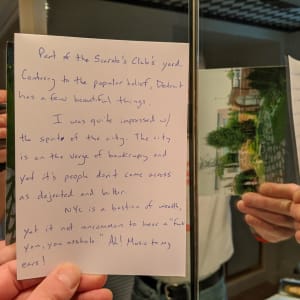 Part of the Scarab's Club's yard.
Contrary to the popular belief, Detroit
has a few beautiful things.
I was quite impressed w/
the spirit of the city. The city
is on the verge of bankrupcy and
yet it's people don't come across
as dejected and bitter.
NYC is a bastion of wealth,
yet it not uncommon to hear a "Fuck
you, you asshole" Ah! Music to my
ears!